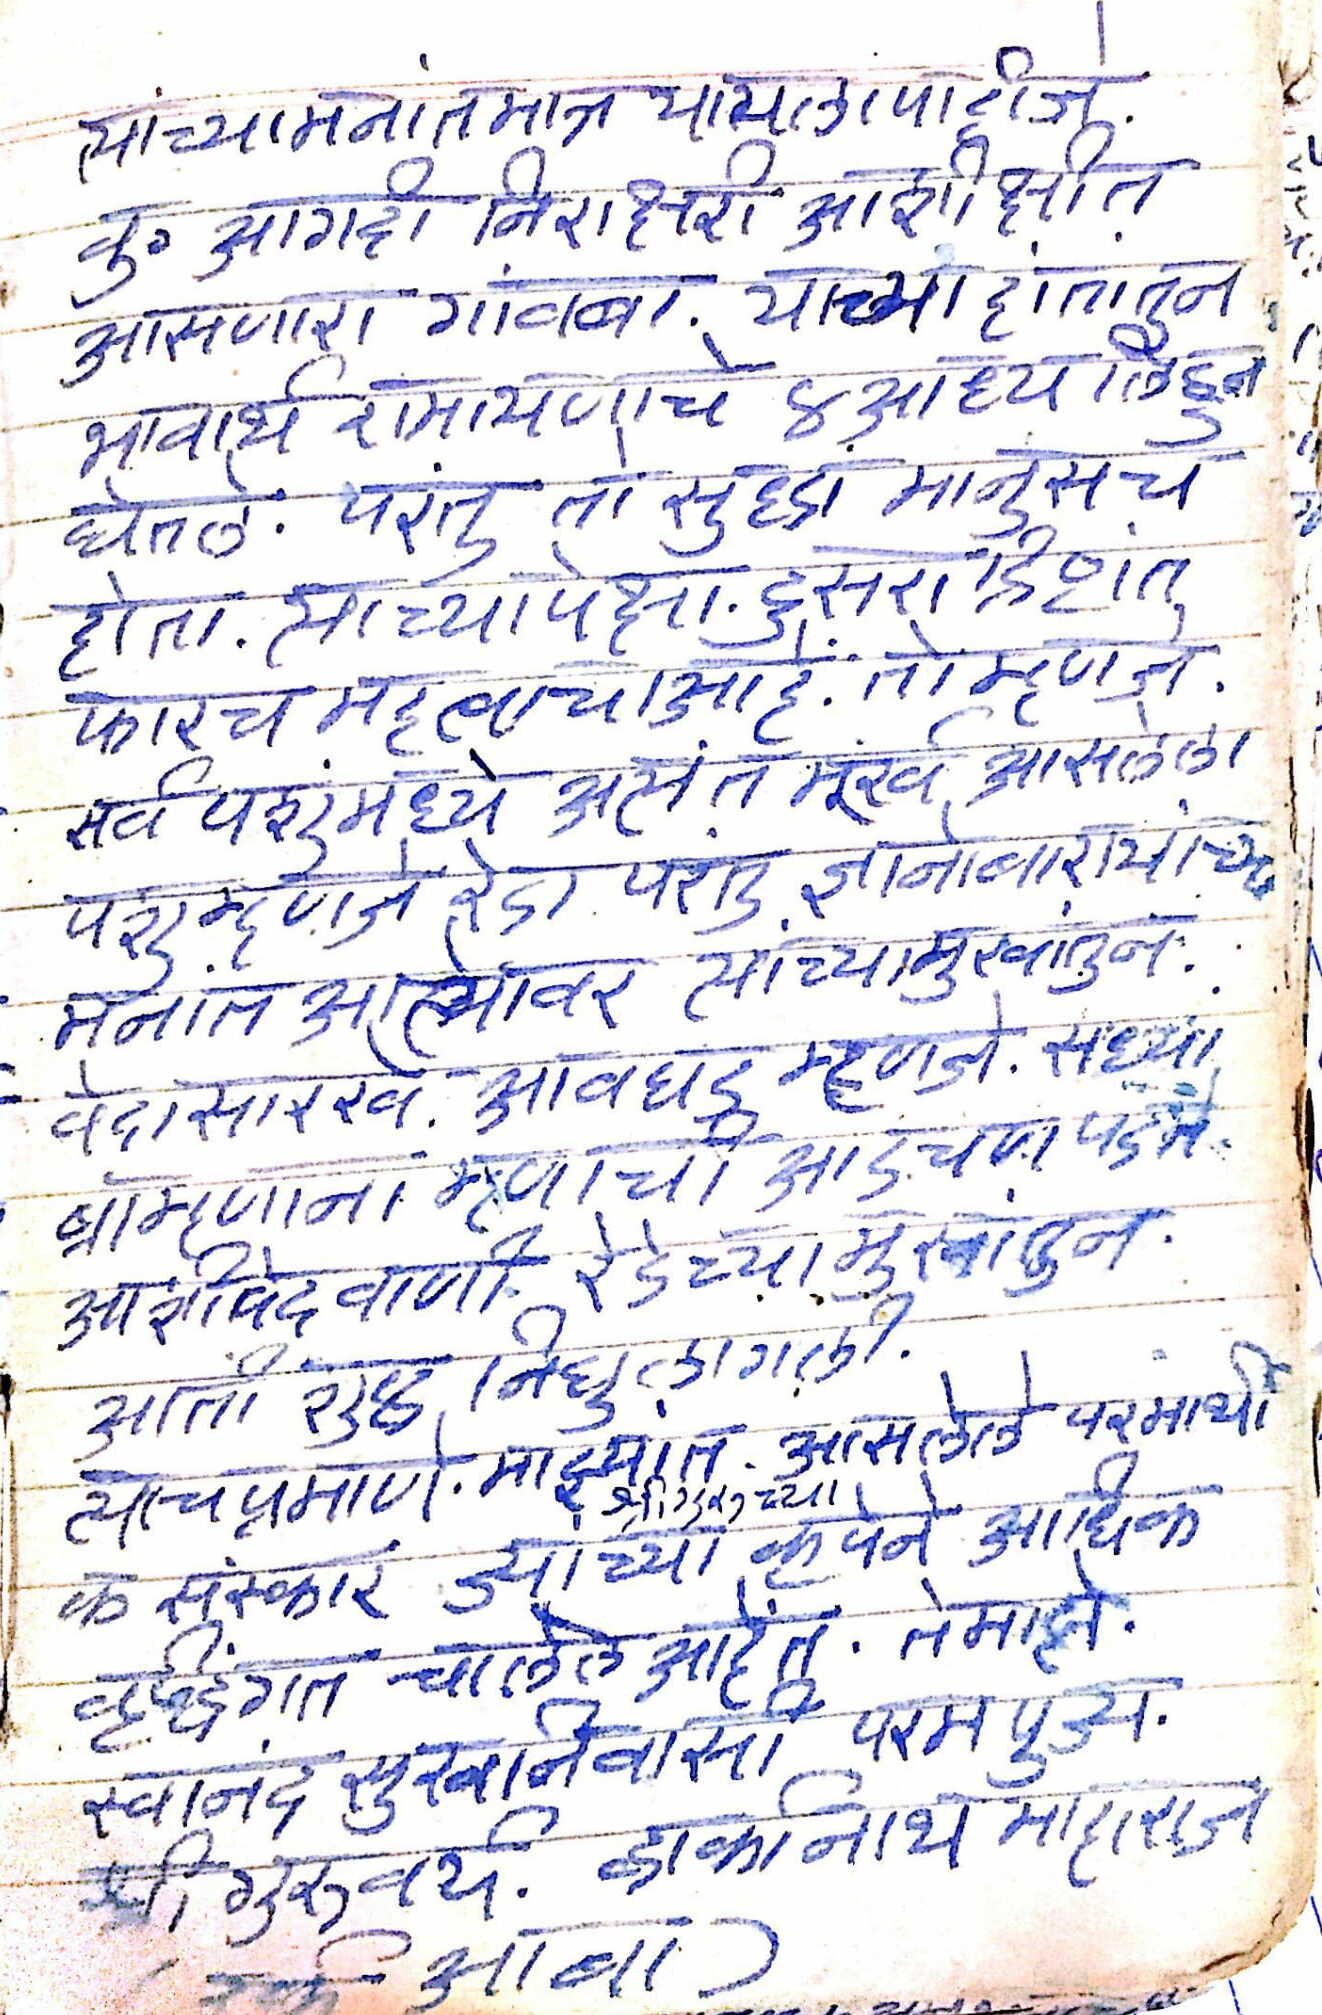 त्यांच्या मनांत मात्र यायला पाहीजे.
कु० आगदी निराक्षरी आशीक्षीत
आसणारा गांवबा. याच्या हांतातुन
भावार्थ रामायणाचे ४ आध्य लिहुन
घेतले. परंतु तो सुध्दा मानुसच
होता. त्याच्यापेक्षा. दुसरा द्रिष्टांत
फारच महत्वाचा आहे. तो म्हणजे.
सर्व पशुमध्ये अत्यंत मूर्ख आसलेला
पशु म्हणजे रेडा परंतु ज्ञानोबारायांच्या
मनांत आल्यावर त्यांच्या मुखांतुन.
वेदासारखे. आवघड म्हणजे. सध्या
ब्रांम्हणानां म्हणाची आडचण पडते.
आशी वेदवाणी रेडेच्या मुखांतुन.
आती शुध्द निघु लागली.
त्याचप्रमाणे. माझ्यांत. आसलेले परमार्थी
श्रीगुरुच्या
क संस्कार ज्यांच्या कृपेने आधिक
वृध्दिंगत चालेले आहेत. ते माझे.
स्वानंद सुखनिवासी परम पुज्य.
श्री गुरुवर्य. व्दार्कानाथ माहाराज
आबा)